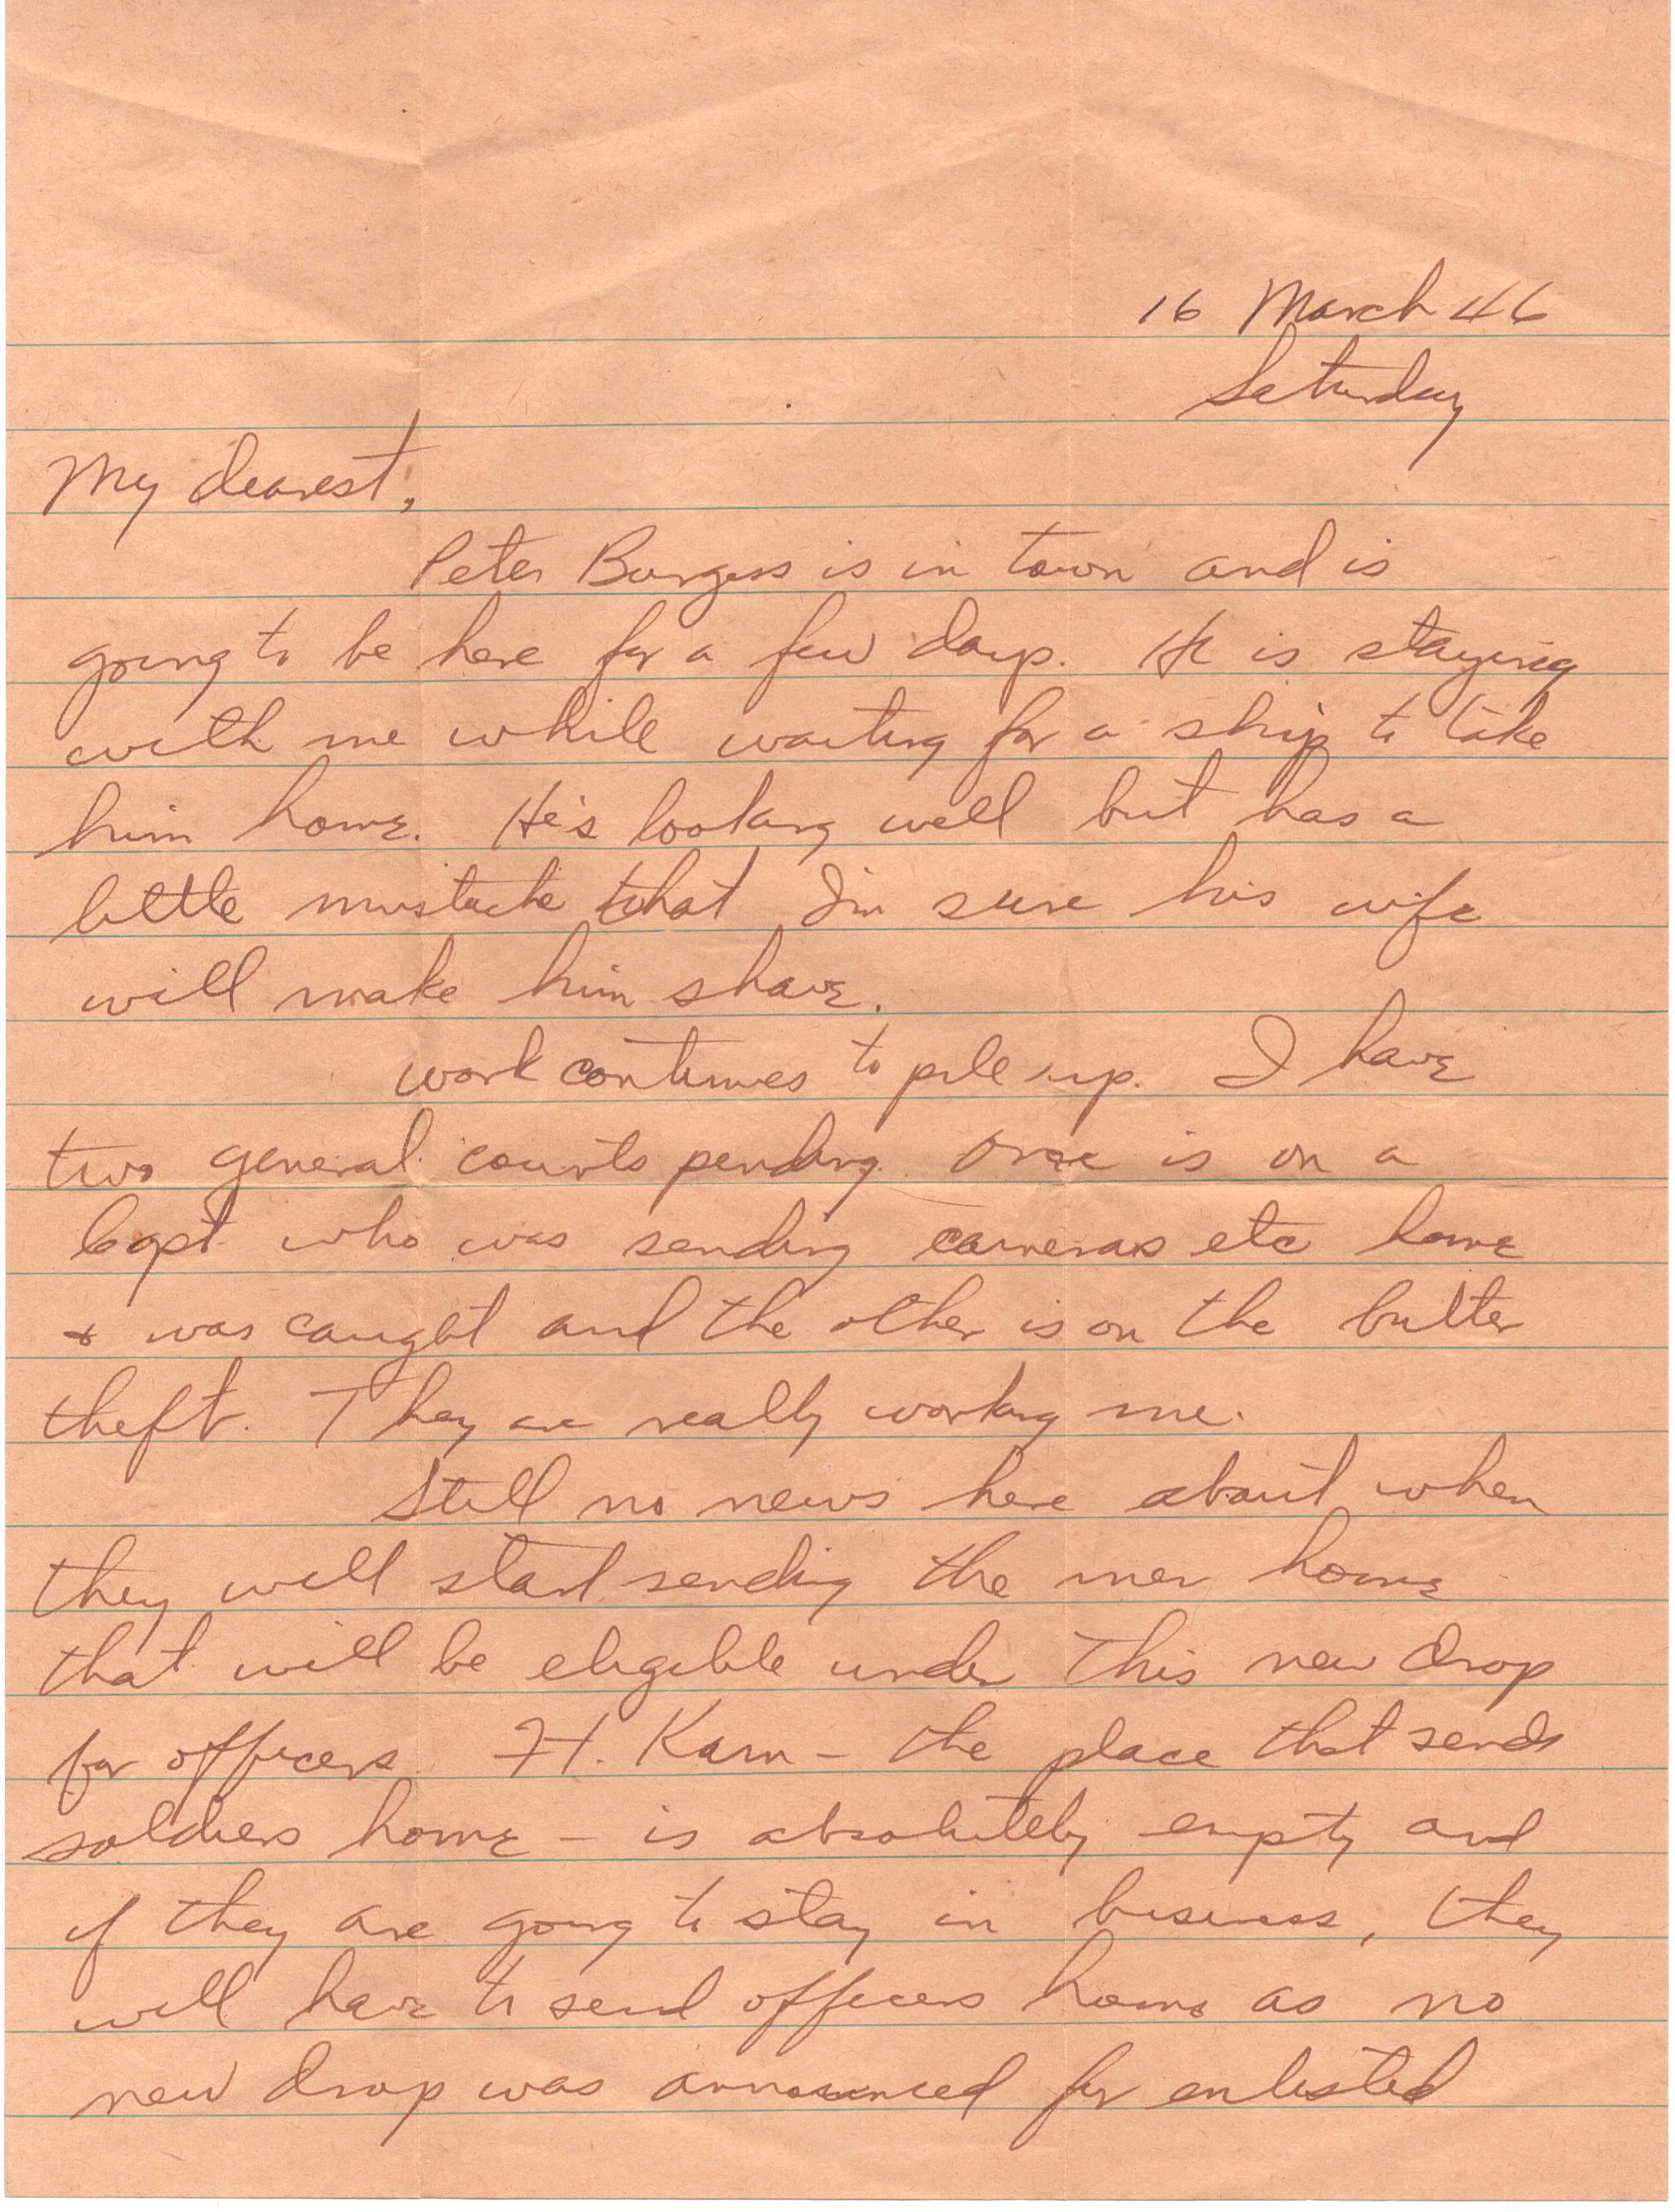 16 March 46
Saturday
My dearest,
Peter Burgess is in town and is
going to be here for a few days. He is staying
with me while waiting for a ship to take
him home. He's looking well but has a
little mustache that I'm sure his wife
will make him shave.
Work continues to pile up. I have
two general courts pending. One is on a
Capt. who was sending cameras etc home
& was caught and the other is on the butter
theft. They are really working me.
Still no news here about when
they will start sending the men home
that will be eligible under this new drop
for officers. Ft. Kam - the place that sends
soldiers home - is absolutely empty and
if they are going to stay in business, they
will have to send officers home as no
new drop was announced for enlisted